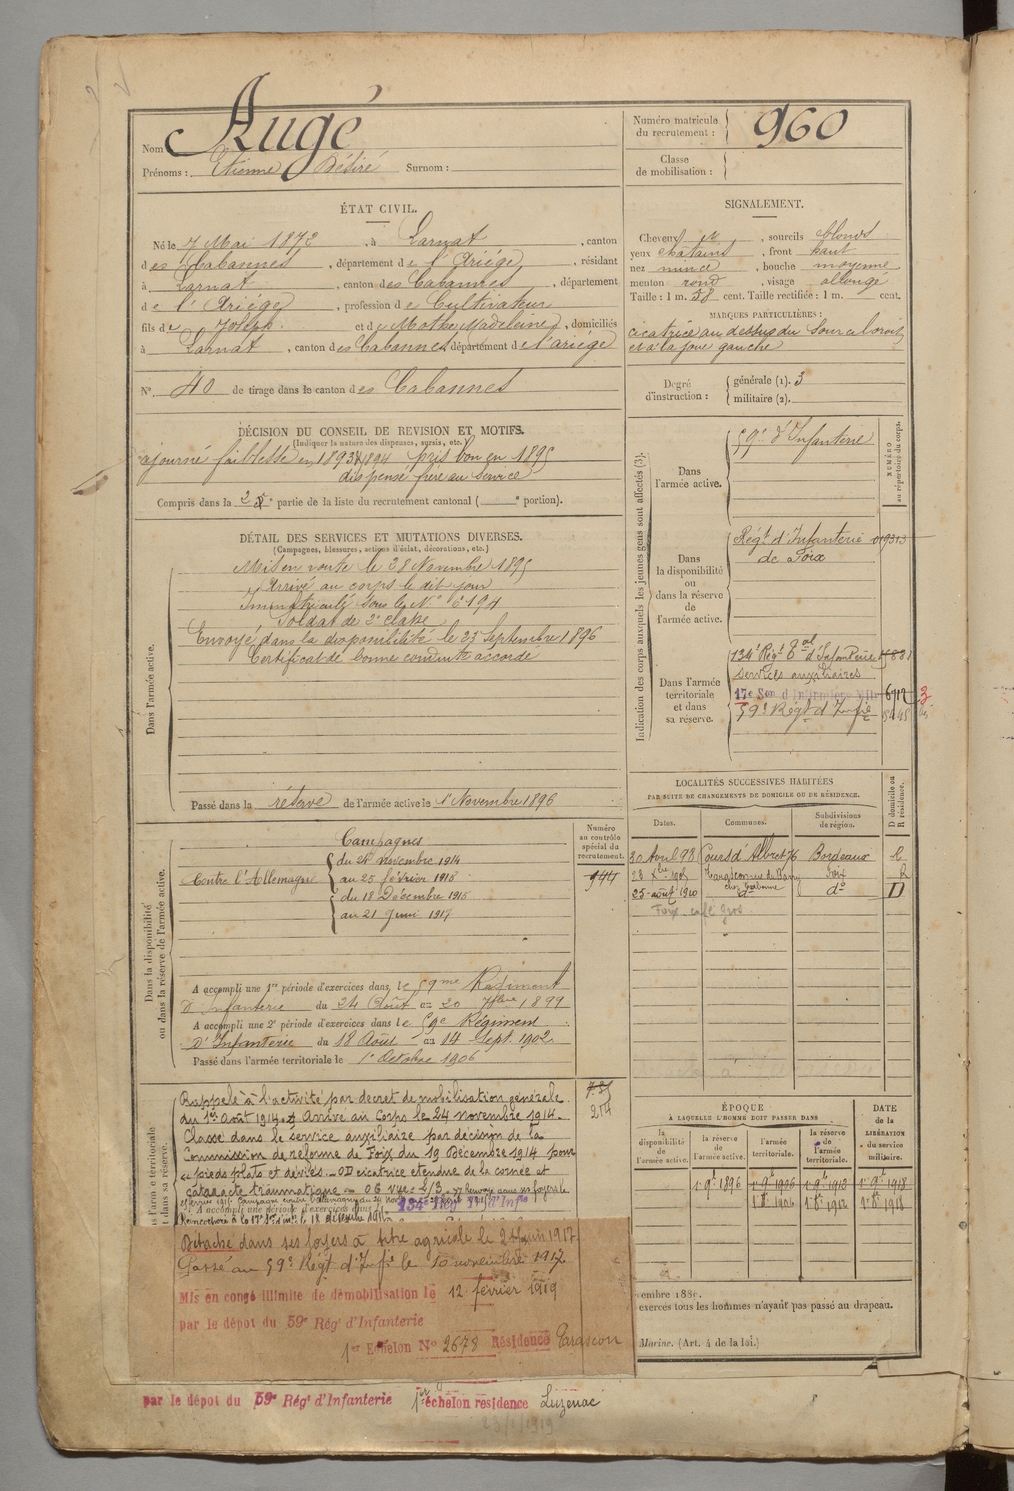 Nom Augé
Prénoms : Etienne Désiré Surnom :
Numéro matricule du recrutement : 960
Classe de mobilisation :
ÉTAT CIVIL.
Né le 7 Mai 1872, à Larnat, canton
des Cabannes, département de l'Ariége, résidant
à Larnat, canton des Cabannes, département
de l'Ariége, profession de Cultivateur
fils de Joseph et de Mathe Madeleine, domiciliés
à Larnat, canton des Cabannes, département de l'ariége
N° 40 de tirage dans le canton des Cabannes
SIGNALEMENT.
Cheveux et, sourcils blonds
yeux chatains, front haut
nez mince, bouche moyenne
menton rond, visage allongé
Taille : 1 m. 58 cent. Taille rectifiée : 1 m. cent.
MARQUES PARTICULIÈRES :
cicatrice au dessus du Sourcil droit
et à la joue gauche
Degré d'instruction : générale (1). 3
militaire (2).
DÉCISION DU CONSEIL DE REVISION ET MOTIFS.
(Indiquer la nature des dispenses, sursis, etc.)
ajourné faiblesse en 1893 & 1894 pris bon en 1895
dispensé frère au service
Compris dans la 2e partie de la liste du recrutement cantonal ( e portion).
DÉTAIL DES SERVICES ET MUTATIONS DIVERSES.
(Campagnes, blessures, actions d'éclat, décorations, etc.)
Dans l'armée active.
Mis en route le 28 Novembre 1895
Arrivé au corps le dit jour
Immatriculé sous le N° 6194
Soldat de 2e classe
Envoyé dans la disponibilité le 25 Septembre 1896
Certificat de bonne conduite accordé
Passé dans la réserve de l'armée active le 1r Novembre 1896
Indication des corps auxquels les jeunes gens sont affectés (3).
NUMÉRO au répertoire du corps.
Dans l'armée active.
59e d'Infanterie
Dans la disponibilité ou dans la réserve de l'armée active.
Régt d'Infanterie
de Foix
Dans l'armée territoriale et dans sa réserve.
134e Régt Tal d'Infanterie
Services auxiliaires
17e Son d'Infirmiers Mil 6712 3
59e Régt d'Infie
LOCALITÉS SUCCESSIVES HABITÉES
PAR SUITE DE CHANGEMENTS DE DOMICILE OU DE RÉSIDENCE.
Dates. Communes. Subdivisions de région. D domicile ou R résidence.
20 Avril 98 Cours d'Albret 76 Bordeaux
28 Xbre 1905 Foix R
25 août 1910 do do D
Foix café gros
Dans la disponibilité ou dans la réserve de l'armée active.
Numéro au contrôle spécial du recrutement.
944
Campagnes
Contre l'Allemagne
du 24 novembre 1914
au 25 février 1915
du 18 Décembre 1915
au 21 Juin 1917
A accompli une 1re période d'exercices dans le 59me Régiment
D'Infanterie du 24 Août au 20 7bre 1899
A accompli une 2e période d'exercices dans le 59e Régiment
D'Infanterie du 18 Août au 14 Sept. 1902
Passé dans l'armée territoriale le 1r Octobre 1906
Rappelé à l'activité par décret de mobilisation générale
du 1er Août 1914. Arrivé au Corps le 24 novembre 1914.
Classé dans le service auxiliaire par décision de la
Commission de réforme de Foix du 19 Décembre 1914 pour
"pieds plats et déviés. OD cicatrice étendue de la cornée et
cataracte traumatique OG Vue = 2/3
A accompli une période d'exercices dans
134e Régt Tal d'Infie
254
ÉPOQUE
À LAQUELLE L'HOMME DOIT PASSER DANS
la disponibilité de l'armée active. la réserve de l'armée active. l'armée territoriale. la réserve de l'armée territoriale.
DATE de la LIBÉRATION du service militaire.
1r 9bre 1896 1r 9bre 1906 1r 9bre 1912 1r 9bre 1918
1r 8bre 1906 1r 8bre 1912 1r 8bre 1918
Détaché dans ses foyers à titre agricole le 21 Juin 1917
Passé au 59e Régt d'Infie le 10 novembre 1917
Mis en congé illimité de démobilisation le 12 février 1919
par le dépôt du 59e Régt d'Infanterie
1er Echelon N° 2678 Résidence Tarascon
exercés tous les hommes n'ayant pas passé au drapeau.
Marine. (Art. 4 de la loi.)
par le dépôt du 59e Régt d'Infanterie 1er échelon résidence Luzenac